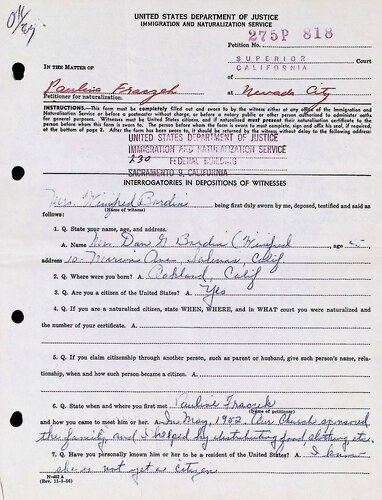 UNITED STATES DEPARTMENT OF JUSTICE
IMMIGRATION AND NATURALIZATION SERVICE
275P 818
Petition No.
SUPERIOR Court
IN THE MATTER OF
of
CALIFORNIA
Paulina Fraczek at Nevada City
Petitioner for naturalization.
INSTRUCTIONS.—This form must be completely filled out and sworn to by the witness either at any office of the Immigration and
Naturalization Service or before a postmaster without charge, or before a notary public or other person authorized to administer oaths
for general purposes. Witnesses must be United States citizens, and if naturalized must present their naturalization certificate to the
person before whom this form is sworn to. The person before whom the form is sworn to must complete, sign and affix his seal, if required,
at the bottom of page 2. After the form has been sworn to, it should be returned by the witness without delay to the following address:
UNITED STATES DEPARTMENT OF JUSTICE
IMMIGRATION AND NATURALIZATION SERVICE
230 FEDERAL BUILDING
SACRAMENTO 9, CALIFORNIA
INTERROGATORIES IN DEPOSITIONS OF WITNESSES
Mrs. Winifred Bardin being first duly sworn by me, deposed, testified and said as
(Name of witness)
follows:
1. Q. State your name, age, and address.
A. Name Mrs. Dan G. Bardin (Winifred age
address 10 Ave, Salinas, Calif
2. Q. Where were you born? A. Oakland, Calif
3. Q. Are you a citizen of the United States? A. Yes
4. Q. If you are a naturalized citizen, state WHEN, WHERE, and IN WHAT court you were naturalized and
the number of your certificate. A.
5. Q. If you claim citizenship through another person, such as parent or husband, give such person's name, rela-
tionship, when and how such person became a citizen. A.
6. Q. State when and where you first met Pauline Fraczek
(Name of petitioner)
and how you came to meet him or her. A. In May, 1952. Our Church sponsored
the family and I helped by distributing food, clothing, etc.
7. Q. Have you personally known him or her to be a resident of the United States? A. I know
she is not yet a citizen
N-462A